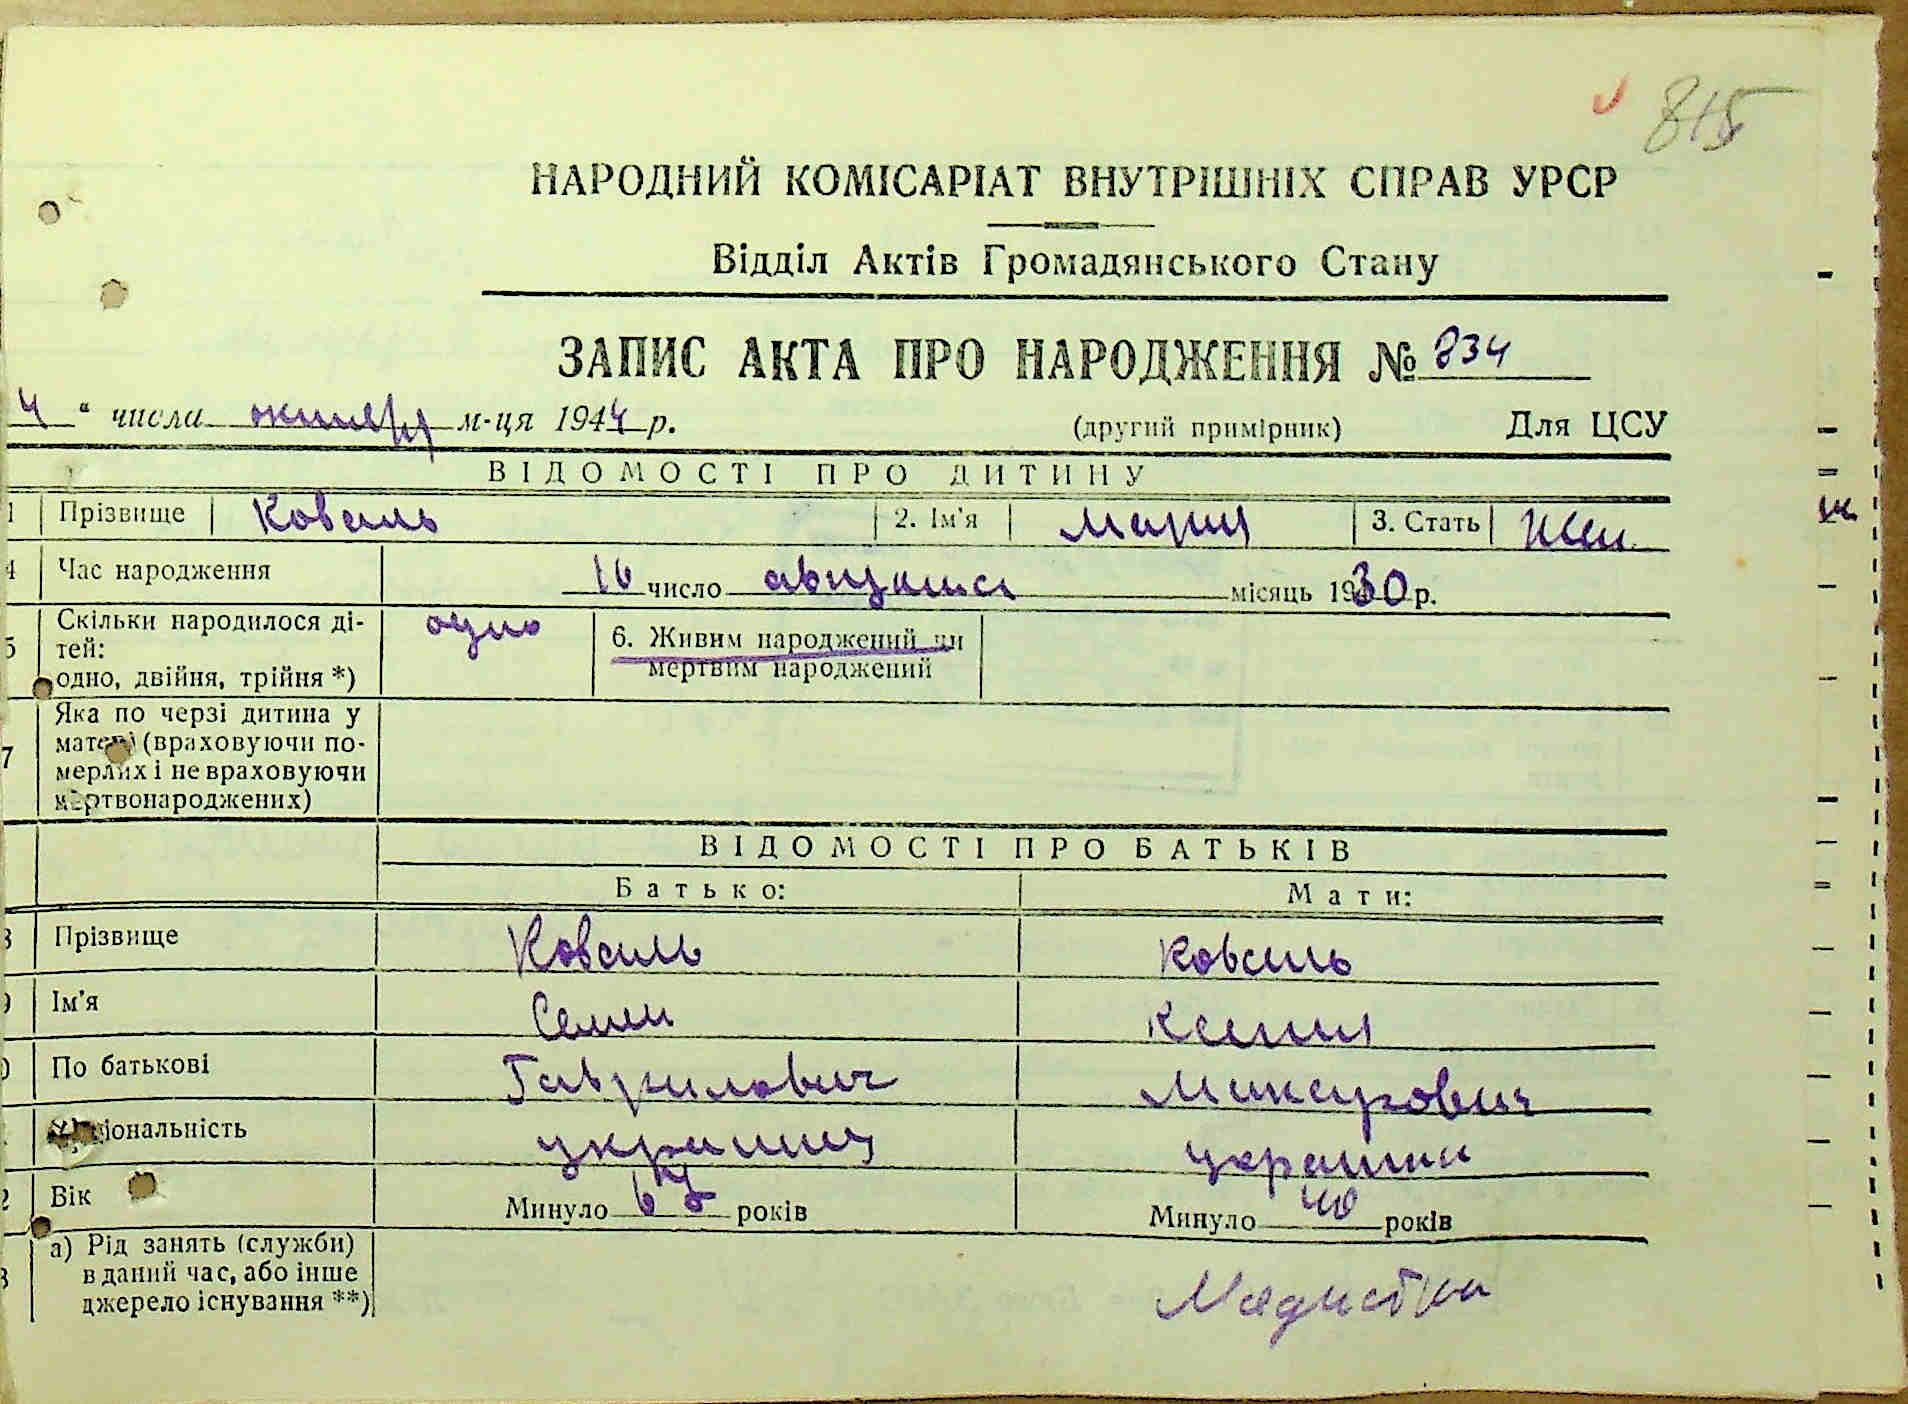 815
НАРОДНИЙ КОМІСАРІАТ ВНУТРІШНІХ СПРАВ УРСР
Відділ Актів Громадянського Стану
ЗАПИС АКТА ПРО НАРОДЖЕННЯ № 834
4 " числа октября м-ця 1944 р. (другий примірник) Для ЦСУ
ВІДОМОСТІ ПРО ДИТИНУ
1 Прізвище Коваль 2. Ім'я Мария 3. Стать жен.
4 Час народження 16 число августа місяць 1930 р.
5 Скільки народилося ді-
тей:
одно, двійня, трійня *) одно 6. Живим народжений чи
мертвим народжений
7 Яка по черзі дитина у
матері (враховуючи по-
мерлих і не враховуючи
мертвонароджених)
ВІДОМОСТІ ПРО БАТЬКІВ
Батько: Мати:
Прізвище Коваль Коваль
Ім'я Семен Ксения
По батькові Гаврилович
Національність украинец украинка
Вік Минуло років Минуло 40 років
а) Рід занять (служби)
в даний час, або інше
джерело існування **)